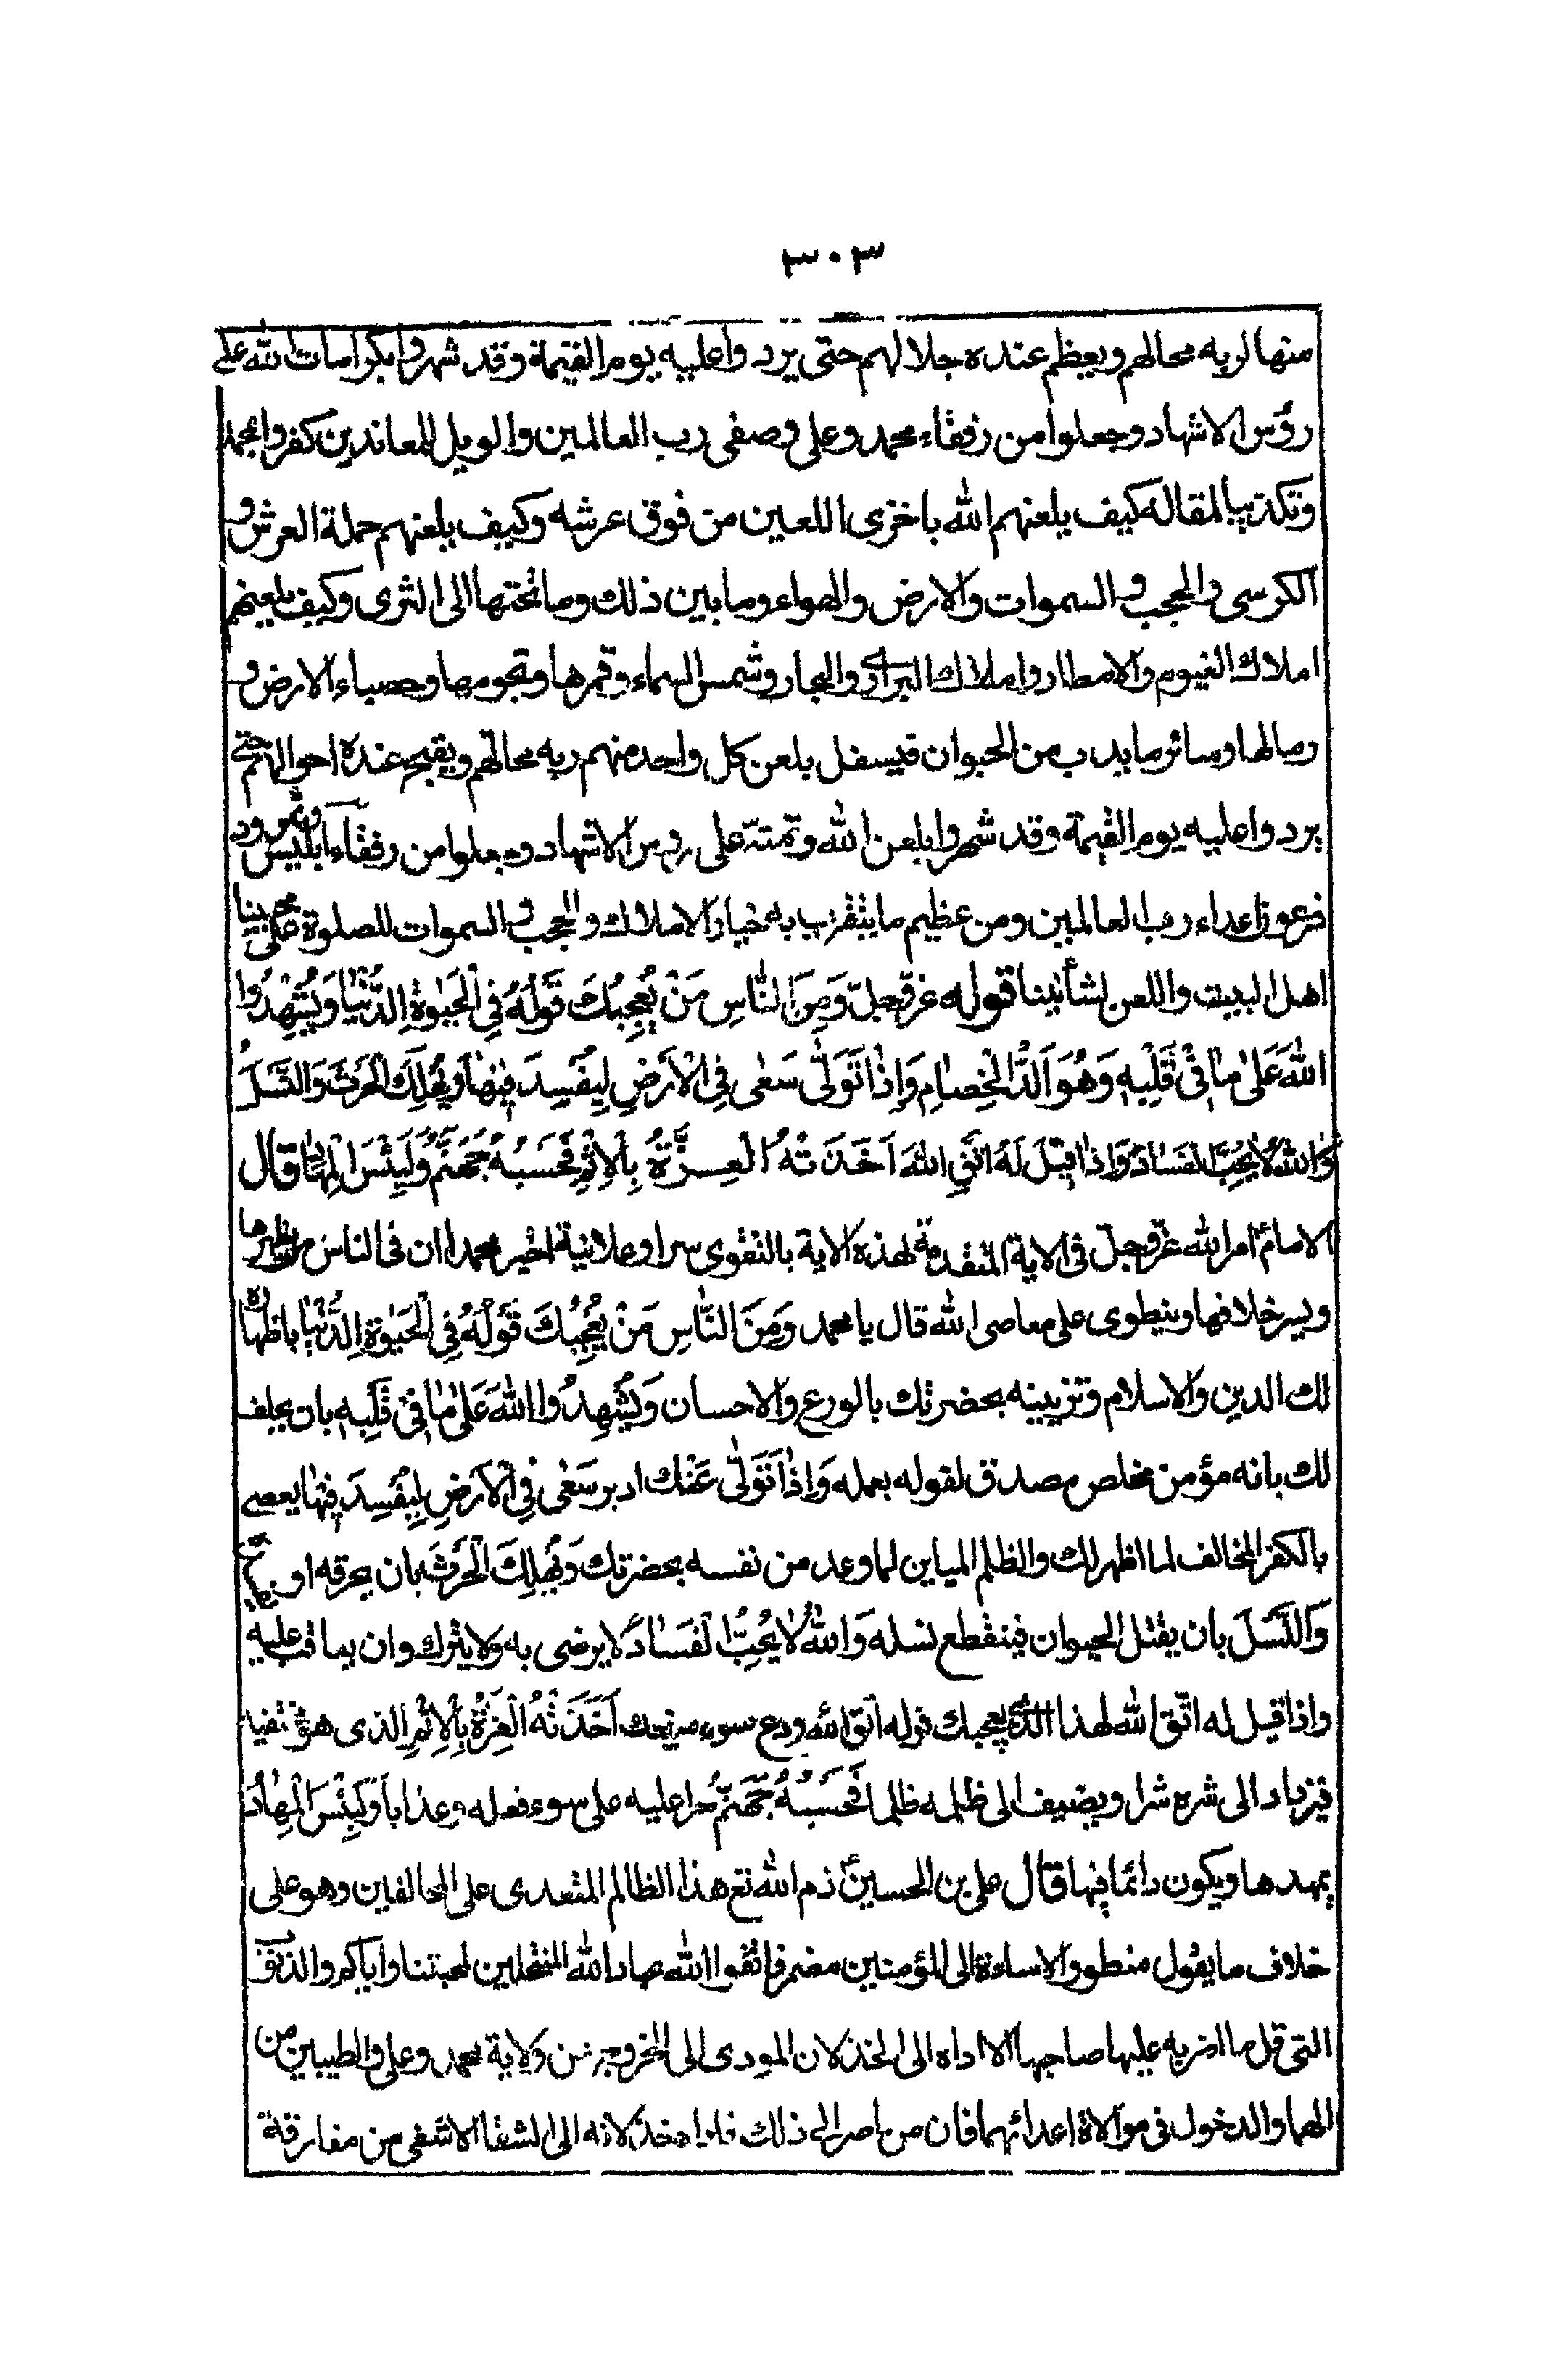 ٣٠٣
منها لربه محالهم ويعظم عنده جلالهم حتى يردوا عليه يوم القيمة وقد شهروا بكرامات الله على
رؤس الاشهاد وجعلوا من رفقاء محمد وعلى وصفى رب العالمين والويل للمعاندين كفروا بمحمد
وتكذيبا لمقاله كيف يلعنهم الله باخزى اللعين من فوق عرشه وكيف يلعنهم حملة العرش و
الكرسى والحجب و السموات والارض والهواء وما بين ذلك وما تحتها الى الثرى وكيف يلعنهم
املاك الغيوم والامطار واملاك البرارى والبحار وشمس السماء وقمرها ونجومها وحصباء الارض و
رمالها وسائر ما يدب من الحيوان فيسفل بلعن كل واحد منهم ربه محالهم ويقبح عنده احوالهم حتى
يردوا عليه يوم القيمة وقد شهروا بلعن الله ومقته على رؤس الاشهاد وجعلوا من رفقاء ابليس ونمرود
فرعون اعداء رب العالمين ومن عظيم ما يتقرب به خيار الاملاك والحجب و السموات للصلوة على محبينا
اهل البيت واللعن لشانئينا قوله عز وجل وَمِنَ النَّاسِ مَنْ يُعْجِبُكَ قَوْلُهُ فِي الْحَيٰوةِ الدُّنْيَا وَيُشْهِدُ
اللهَ عَلىٰ مٰا فِي قَلْبِهِ وَهُوَ اَلَدُّ الْخِصٰامِ وَاِذٰا تَوَلّٰى سَعٰى فِي الْاَرْضِ لِيُفْسِدَ فِيهٰا وَيُهْلِكَ الْحَرْثَ وَالنَّسْلَ
وَاللهُ لٰا يُحِبُّ الْفَسٰادَ وَاِذٰا قِيلَ لَهُ اتَّقِ اللهَ اَخَذَتْهُ الْعِزَّةُ بِالْاِثْمِ فَحَسْبُهُ جَهَنَّمُ وَلَبِئْسَ الْمِهٰادُ قال
الامام امر الله عز وجل فى الاية المتقدمة لهذه الاية بالتقوى سرا وعلانية اخبر محمدا ان فى الناس من يظهرها
ويسر خلافها وينطوى على معاصى الله قال يا محمد وَمِنَ النَّاسِ مَنْ يُعْجِبُكَ قَوْلُهُ فِي الْحَيٰوةِ الدُّنْيٰا باظهاره
لك الدين والاسلام وتزيينه بحضرتك بالورع والاحسان وَيُشْهِدُ اللهَ عَلىٰ مٰا فِي قَلْبِهِ بان يحلف
لك بانه مؤمن مخلص مصدق لقوله بعمله وَاِذٰا تَوَلّٰى عَنْك ادبر سَعٰى فِي الْاَرْضِ لِيُفْسِدَ فِيهٰا يعصى
بالكفر المخالف لما اظهر لك والظلم المباين لما وعد من نفسه بحضرتك وَيُهْلِكَ الْحَرْثَ بان يحرقه او
وَالنَّسْلَ بان يقتل الحيوان فينقطع نسله وَاللهُ لٰا يُحِبُّ الْفَسٰادَ لا يرضى به ولا يترك وان يعاقب عليه
واذا قيل له اتّق الله لهذا الذى يعجبك قوله اتق الله ودع سوء صنيعك اَخَذَتْهُ الْعِزَّةُ بِالْاِثْمِ الذى هو
فيزداد الى شره شرا ويضيف الى ظلمه ظلما فَحَسْبُهُ جَهَنَّمُ جزاء عليه على سوء فعله وعذابا وَلَبِئْسَ الْمِهٰادُ
يمهدها ويكون دائما فيها قال على بن الحسين ذم الله تع هذا الظالم المتعدى على المخالفين وهو على
خلاف ما يقول منطو والاساءة الى المؤمنين مضمر فاتقوا الله عباد الله المنتحلين لمحبتنا واياكم والذنوب
التى قل ما اضر به عليها صاحبها الا اداه الى الخذلان المودى الى الخروج من ولاية محمد وعلى والطيبين من
الهما والدخول فى موالاة اعدائهما فان من اصر الى ذلك فادا خذلانه الى الشقا الاشقى من مفارقة